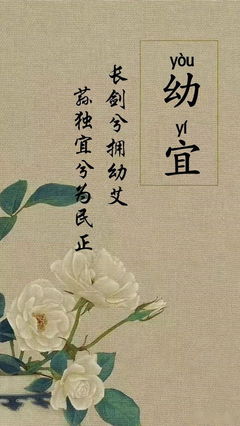 yòu
幼
yí
宜
长剑兮拥幼艾
荪独宜兮为民正